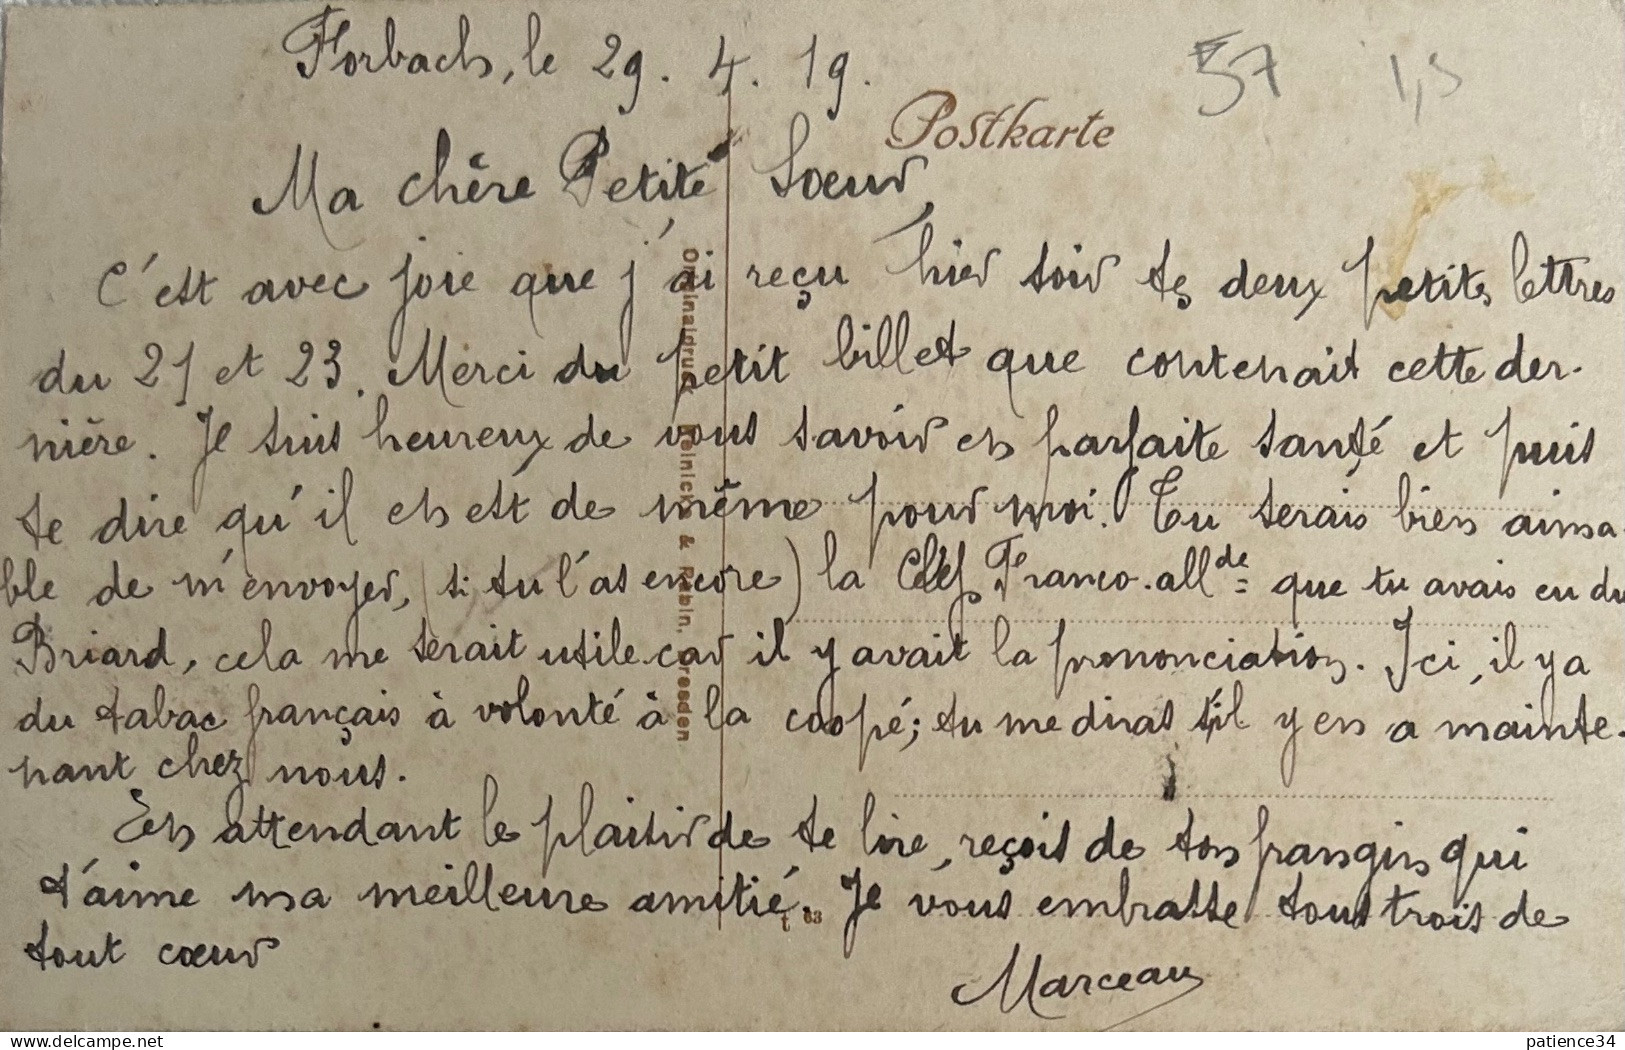 Forbach, le 29. 4. 19.
57 1,5
Postkarte
Ma chère Petite Sœur,
C'est avec joie que j'ai reçu hier soir tes deux petites lettres
du 21 et 23. Merci du petit billet que contenait cette der-
nière. Je suis heureux de vous savoir en parfaite santé et puis
te dire qu'il en est de même pour moi. Tu serais bien aima-
ble de m'envoyer, (si tu l'as encore) la Clef Franco-allde que tu avais eu du
Briard, cela me serait utile car il y avait la prononciation. Ici, il y a
du tabac français à volonté à la coopé; tu me diras s'il y en a mainte-
nant chez nous.
En attendant le plaisir de te lire, reçois de ton frangin qui
t'aime ma meilleure amitié. Je vous embrasse tous trois de
tout cœur
Marceau
Originaldruck Reinicke & Rubin, Dresden
63
delcampe.net
patience34